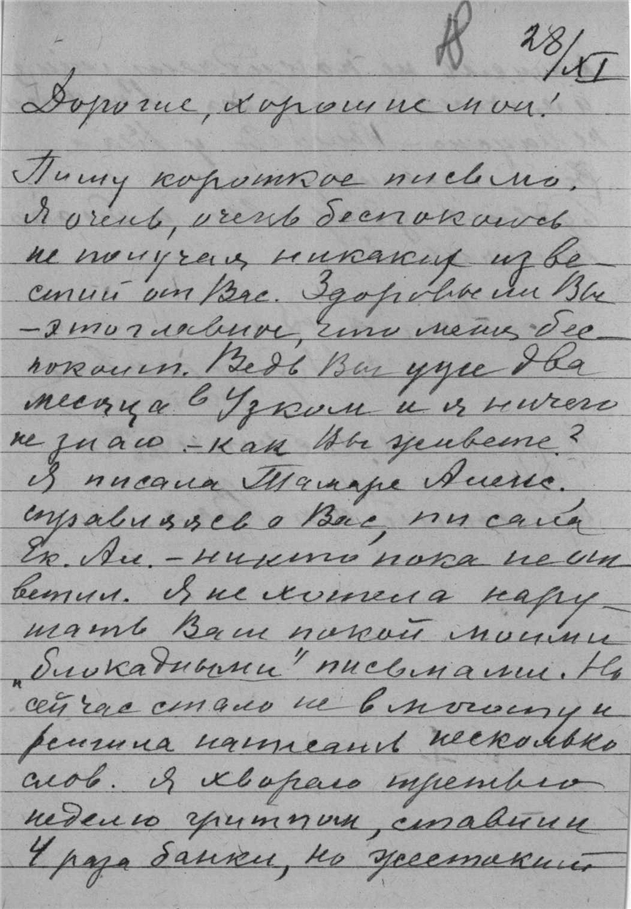 28/XI
Дорогие, хорошие мои!
Пишу короткое письмо.
Я очень, очень беспокоюсь
не получая никаких изве-
стий от Вас. Здоровы ли Вы
- это главное, что меня бес-
покоит. Ведь Вы уже два
месяца в Узком и я ничего
не знаю - как Вы живете?
Я писала Тамаре Алекс.,
справляясь о Вас, писала
Ек. Ал. - никто пока не от
ветил. Я не хотела нару-
шать Ваш покой моими
„блокадными" письмами. Но
сейчас стало не в моготу и
решила написать несколько
слов. Я хвораю третью
неделю гриппом, ставили
4 раза банки, но жестокий